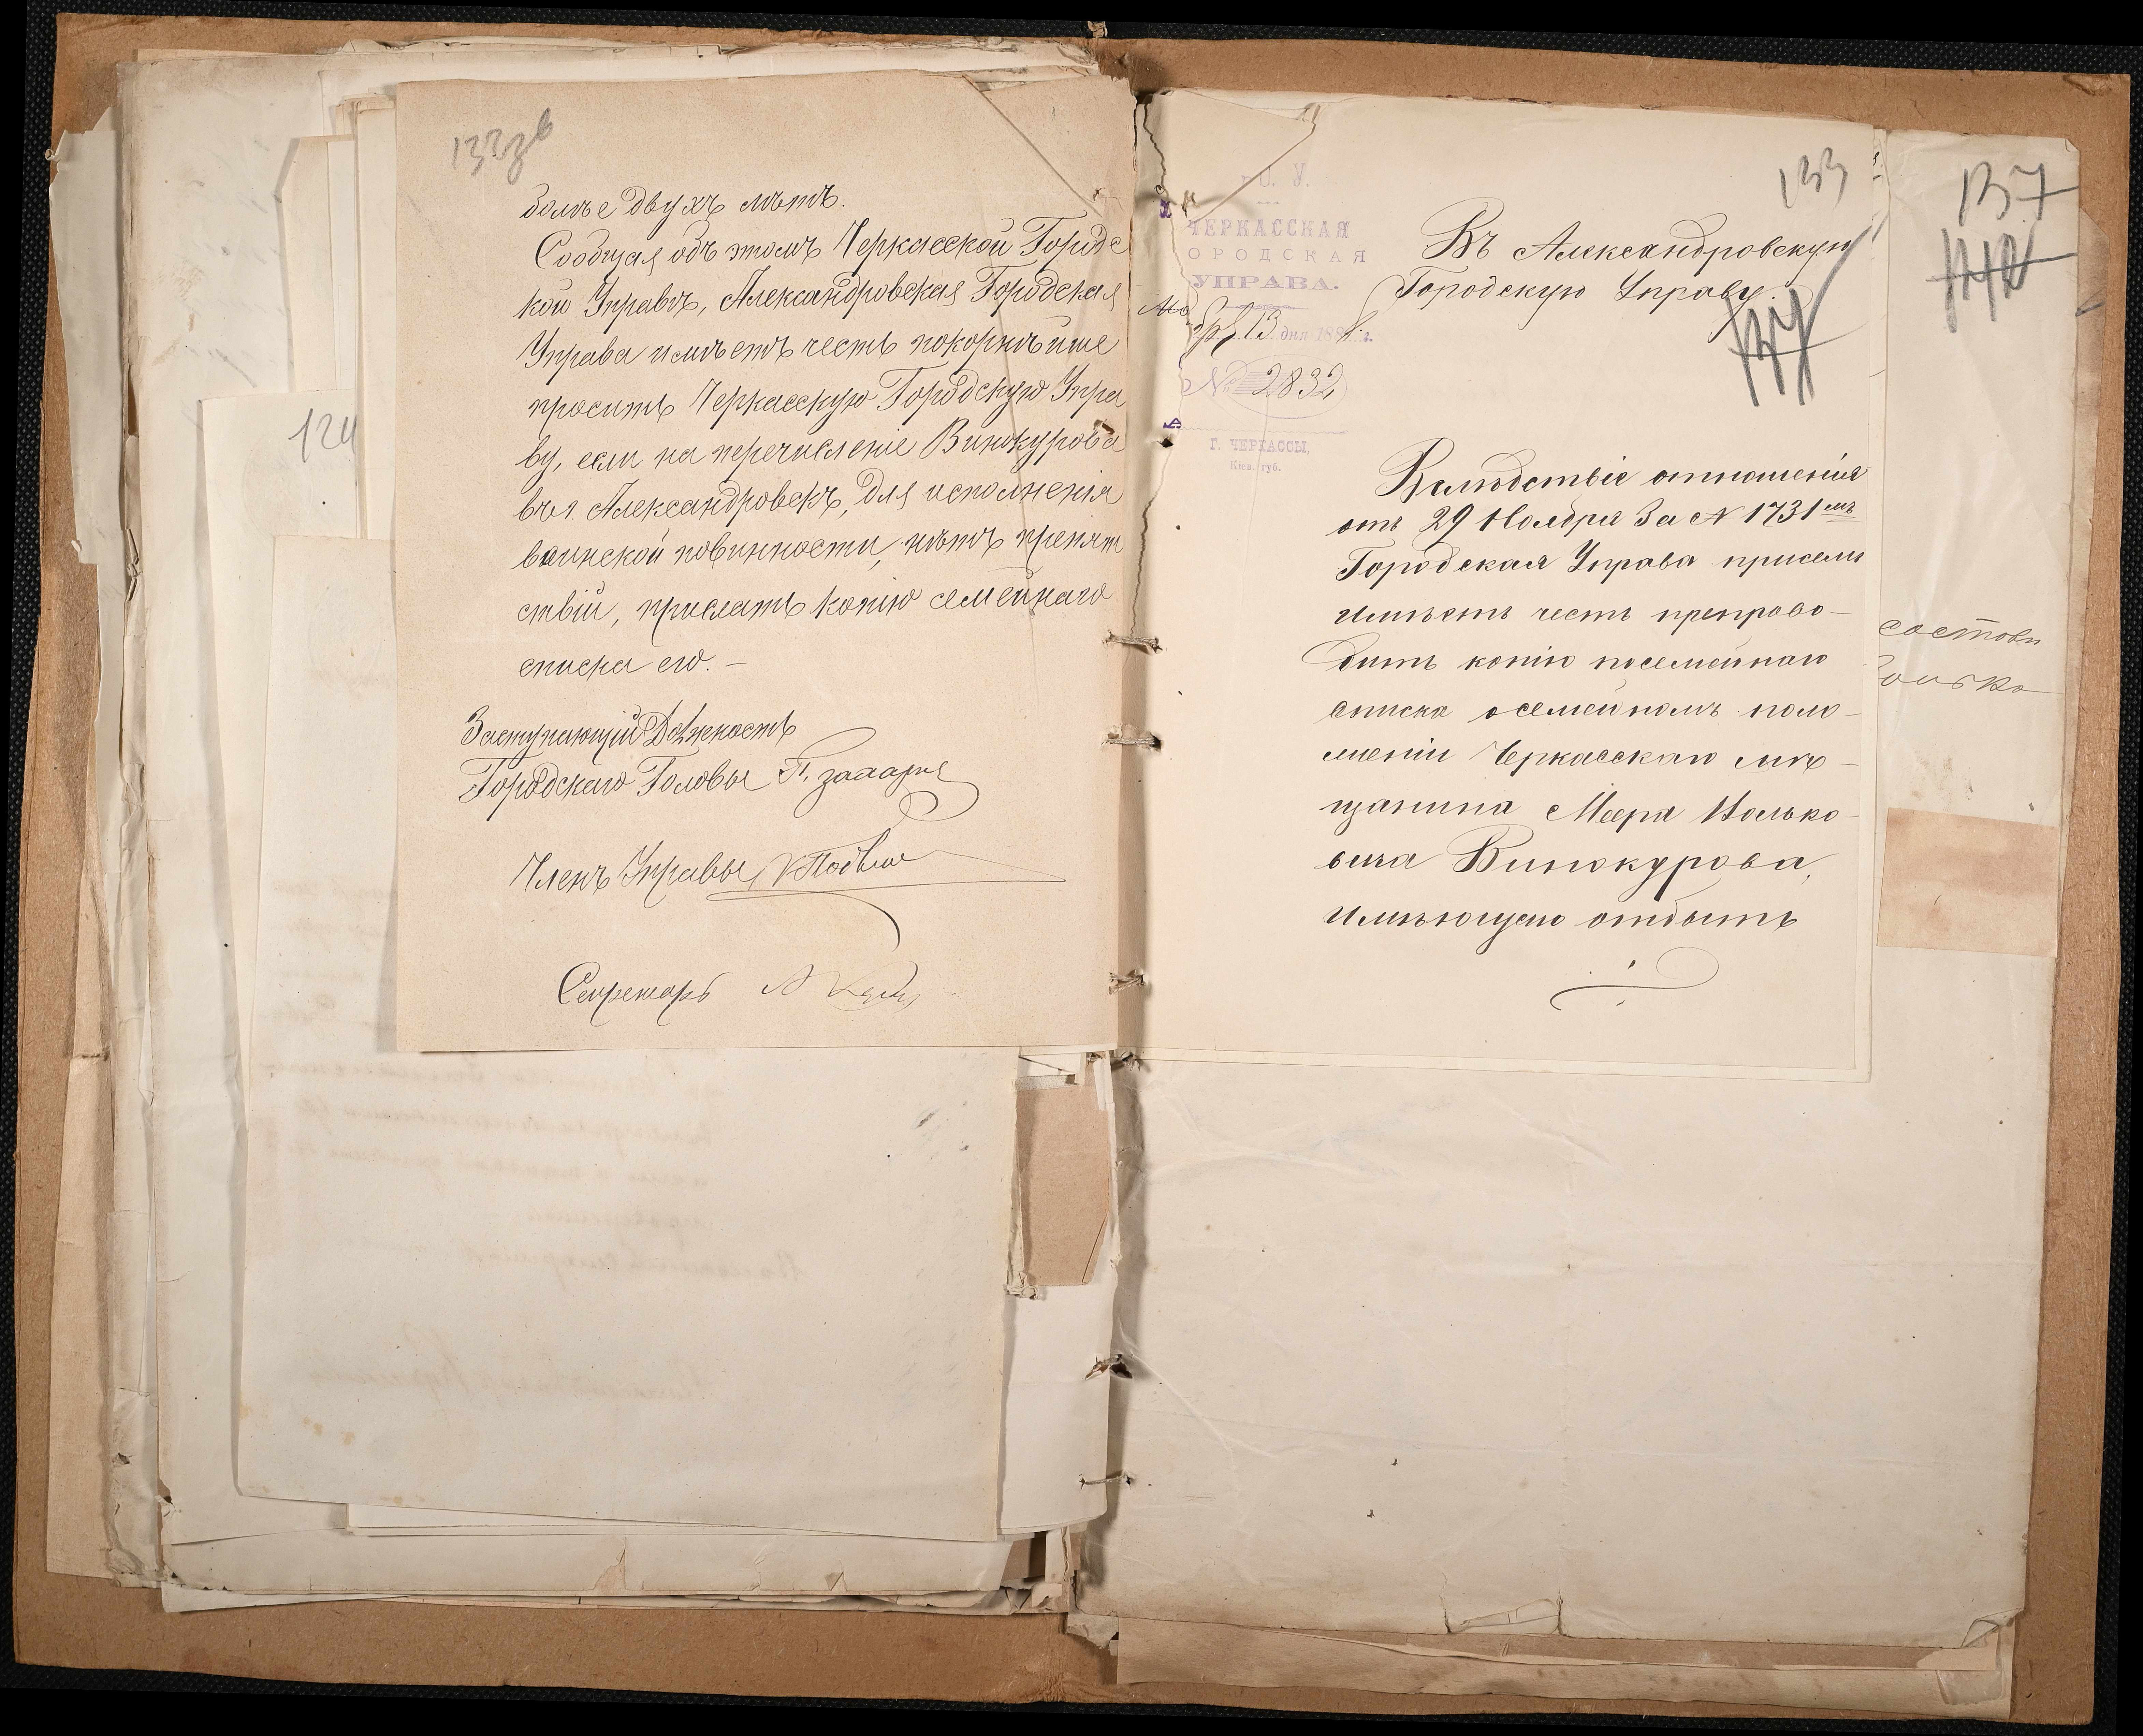 132зв
болѣе двухъ лѣтъ.
Сообщая объ этомъ Черкасской Городс
кой Управѣ, Александровская Городская
Управа имѣетъ честь покорнѣйше
просить Черкасскую Городскую Упра
ву, если на перечисленіе Винокурова
въ г. Александровскъ, для исполненія
воинской повинности, нѣтъ препят
ствій, прислать копію семейнаго
списка его. –
Заступающій Должность
Городскаго Головы
Членъ Управы
Секретарь
124
133
137
ЧЕРКАССКАЯ
ГОРОДСКАЯ
УПРАВА.
13 дня 188 г.
№ 2832
Г. ЧЕРКАССЫ,
Кіев. губ.
Въ Александровскую
Городскую Управу.
Вслѣдствіе отношенія
отъ 29 Ноября за № 1731мъ
Городская Управа присемъ
имѣетъ честь препрово–
дить копію посемейнаго
списка о семейномъ поло–
женіи Черкасскаго мѣ–
щанина Меера Ицько–
вича Винокурова,
имѣющаго отбыть
состоян